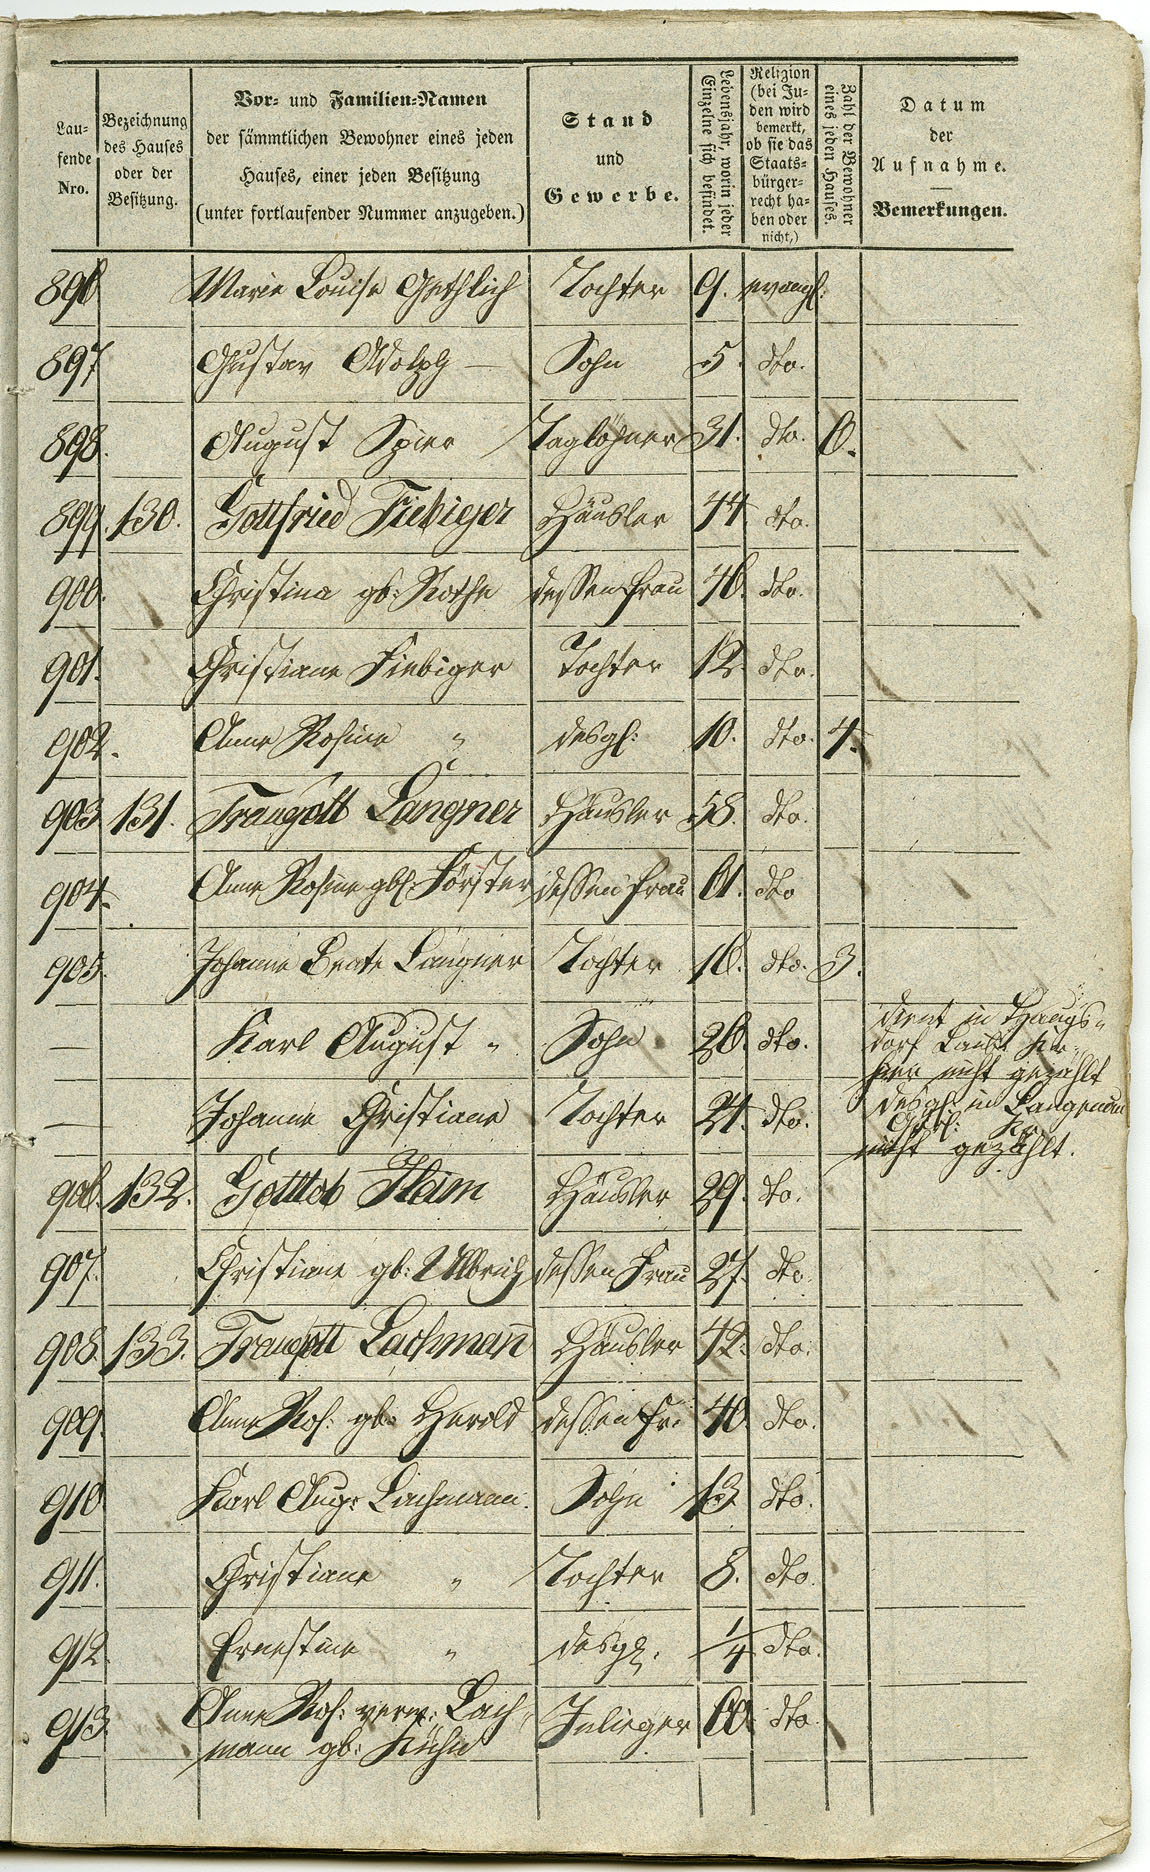 Lau-
fende
Nro.
Bezeichnung
des Hauses
oder der
Besitzung.
Vor- und Familien-Namen
der sämmtlichen Bewohner eines jeden
Hauses, einer jeden Besitzung
(unter fortlaufender Nummer anzugeben.)
Stand
und
Gewerbe.
Lebensjahr, worin jeder
Einzelne sich befindet.
Religion
(bei Ju-
den wird
bemerkt,
ob sie das
Staats-
bürger-
recht ha-
ben oder
nicht,)
Zahl der Bewohner
eines jeden Hauses.
Datum
der
Aufnahme.
Bemerkungen.
896 Marie Louise Tochter 9. evangl:
897 Gustav Adolph — Sohn 5. dto.
898. August Spier Taglöhner 31. dto. 6.
899. 130. Gottfried Fiebiger Häusler 44. dto.
900. Christina gb: Rothe dessen Frau 46. dto.
901. Christiane Fiebiger Tochter 12. dto.
902. Anne Rosine " desgl: 10. dto. 4.
903. 131. Traugott Langner Häusler 58. dto.
904. Anne Rosine gb: Förster dessen Frau 61. dto
905. Johanne Beate Langner Tochter 16. dto. 3.
— Karl August " Sohn 26. dto. dient in Haugs-
dorf Laub: Kr.
hier nicht gezählt
— Johanne Christiane Tochter 24. dto. desgl: in Langenau
Görl: Kr.
nicht gezählt.
906. 132. Gottlob Heim Häusler 29. dto.
907. Christiane gb: Ullbrich dessen Frau 27. dto.
908. 133. Traugott Lachmann Häusler 42. dto.
909. Anne Ros: gb: Herold dessen Fr: 40. dto.
910 Karl Aug: Lachmann. Sohn 13. dto.
911. Christiane " Tochter 8. dto.
912. Ernestine " desgl. 1/4 dto.
913. Anne Ros: verw: Lach-
mann gb: Kühn Inlieger 60. dto.